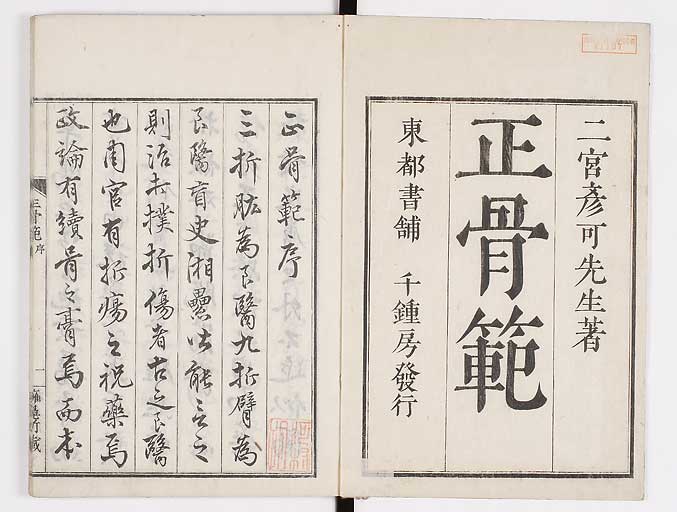 二宮彥可先生著
正骨範
東都書舖 千鍾房發行
正骨範序
三折肱為良醫九折臂為
良醫盲史湘纍皆能言之
則治打撲折傷者古之良醫
也周官有折瘍之祝藥焉
政論有續骨之膏焉而本
正骨範序
一